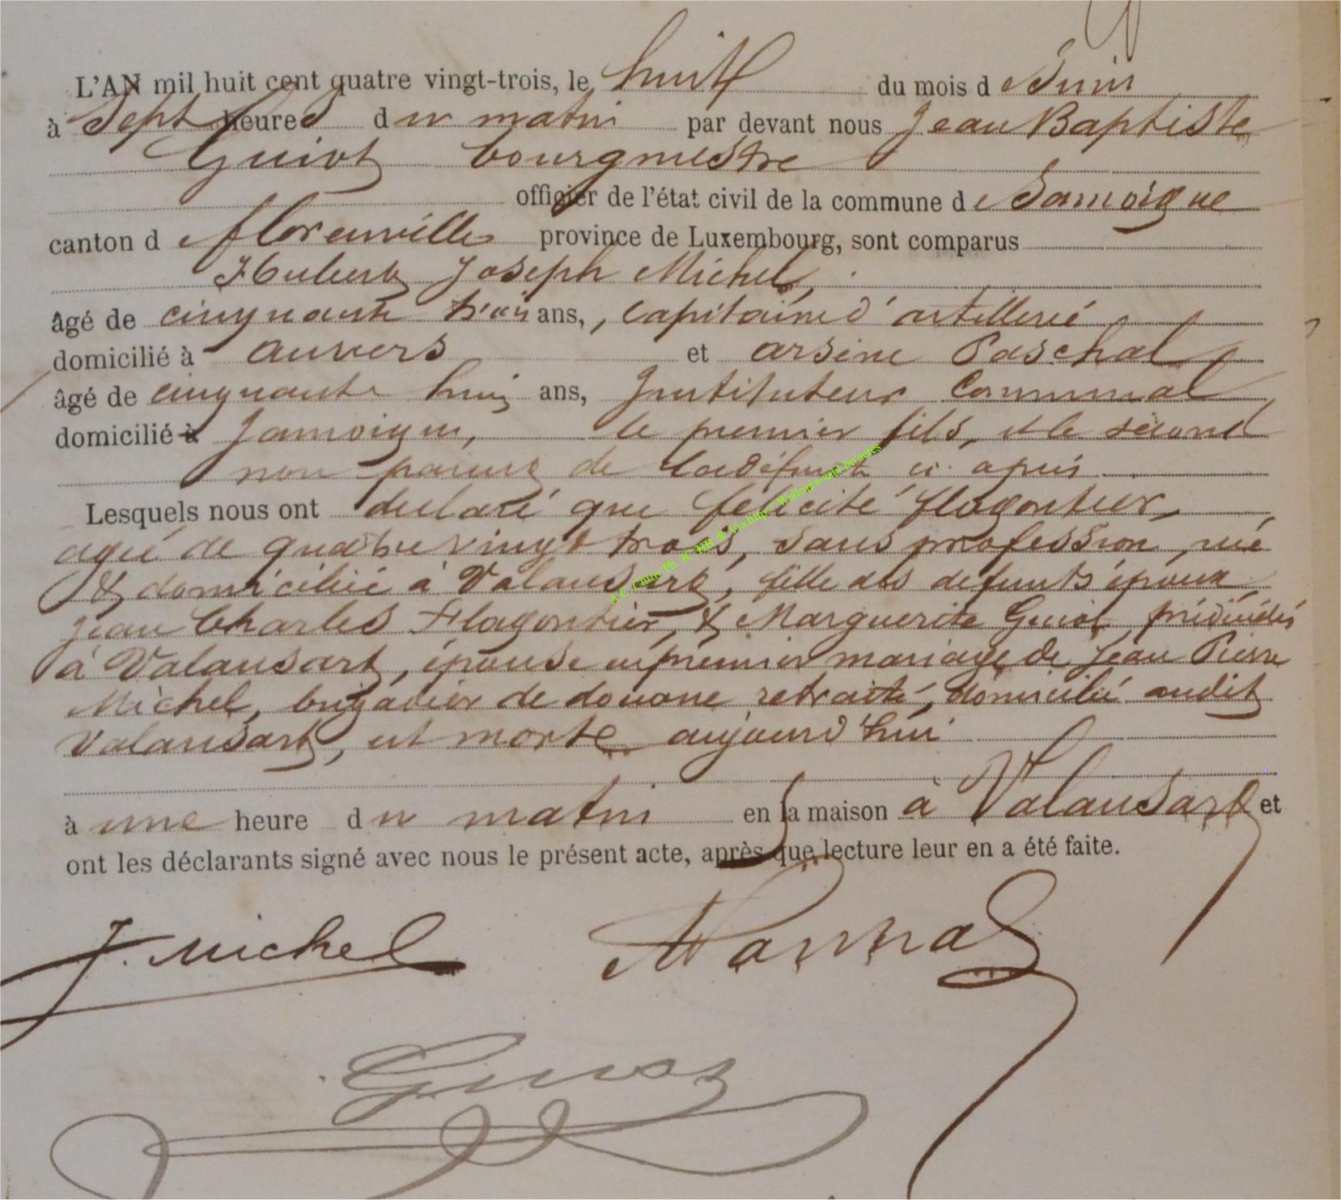 L'AN mil huit cent quatre vingt-trois, le huit du mois d e Juin
à Sept heures du matin par devant nous Jean Baptiste
Guiot bourgmestre
officier de l'état civil de la commune d e Jamoigne
canton d e florenville province de Luxembourg, sont comparus
Hubert Joseph Michel,
âgé de cinquante trois ans, , capitaine d'artillerie
domicilié à anvers et arsène Paschal
âgé de cinquante huit ans, Instituteur Communal
domicilié à Jamoigne, le premier fils, et le second
non parent de la défunte ci après
Lesquels nous ont déclaré que félicité flagontier,
agée de quatre vingt trois, sans profession, née
& domiciliée à Valansart, fille des défunts époux
Jean Charles Flagontier, & Marguerite Guiot, prédécédés
à Valansart, épouse en premier mariage de Jean Pierre
Michel, brigadier de douane retraité, domicilié audit
Valansart, est morte aujourd'hui
à une heure du matin en sa maison à Valansart et
ont les déclarants signé avec nous le présent acte, après que lecture leur en a été faite.
J. Michel
Guiot